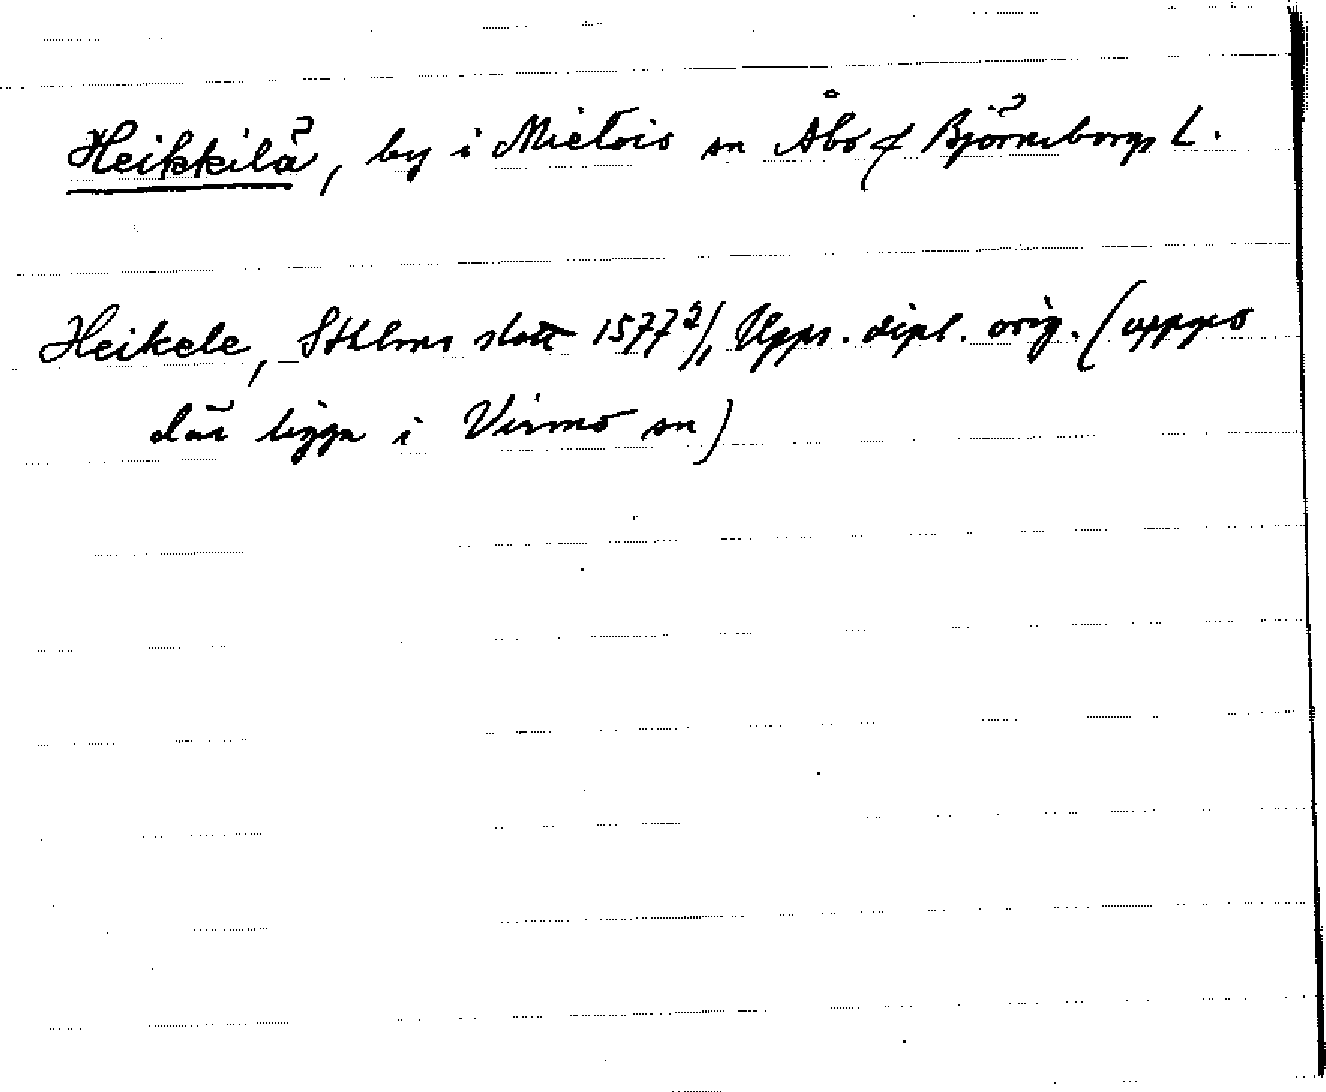 Heikkilä, by i Mietois sn Åbo o Björneborgs L.
Heikele, Sthlms slott 1577 2/1, Upps. dipl. orig. (uppges
där ligga i Virmo sn)